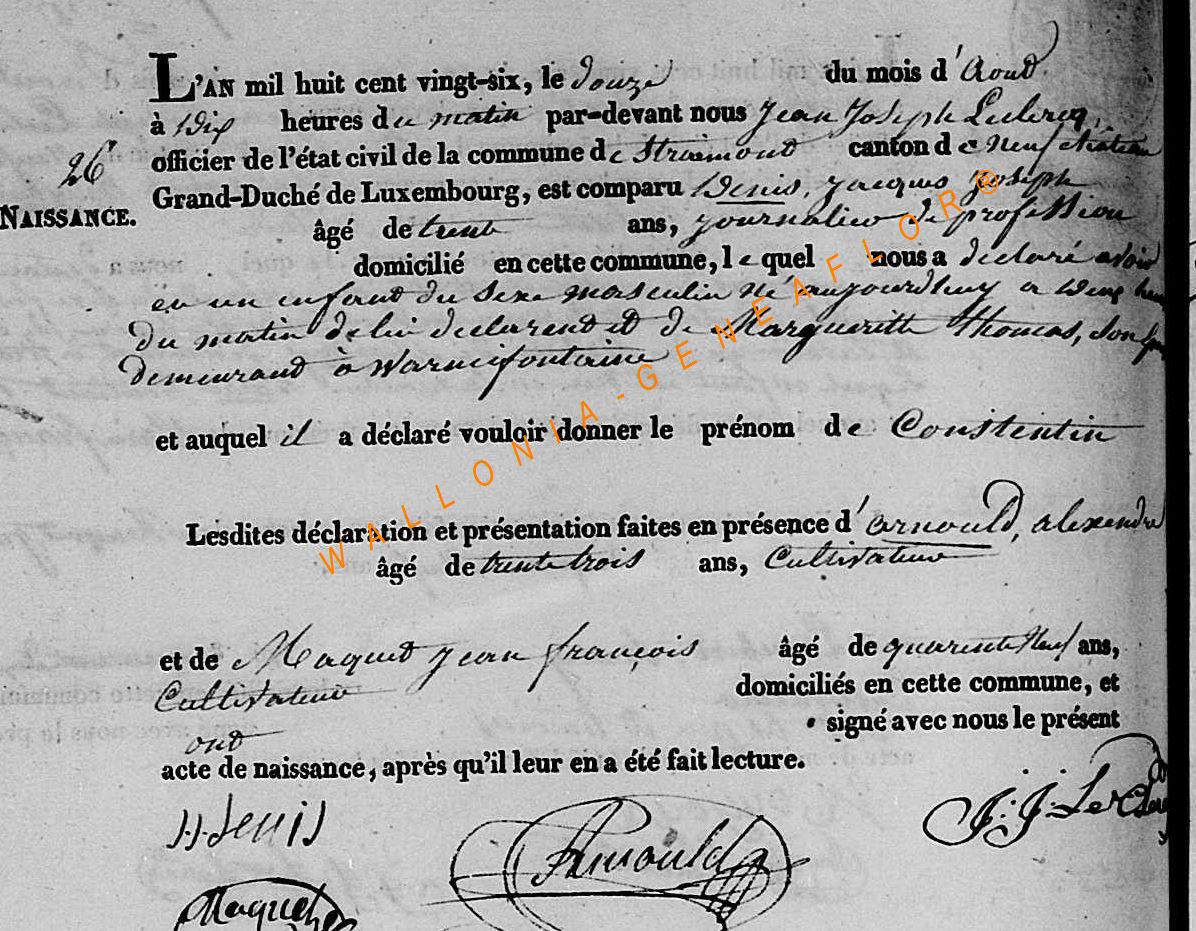 L'AN mil huit cent vingt-six, le douze du mois d'Aout
à Dix heures du matin par-devant nous Jean Joseph Leclercq,
officier de l'état civil de la commune de Straimont canton de Neufchateau
26
Grand-Duché de Luxembourg, est comparu Denis, Jacques Joseph
NAISSANCE.
âgé de trente ans, journalier de profession
domicilié en cette commune, le quel nous a déclaré avoir
eu un enfant du sexe masculin né aujourdhuy a
du matin de lui declarent et de Margueritte Thomas, son
demeurant à Warmifontaine
et auquel il a déclaré vouloir donner le prénom de Constentin
Lesdites déclaration et présentation faites en présence d'arnould, alexendre
âgé de trente trois ans, Cultivateur
et de Maquet Jean françois âgé de quarente Neuf ans,
Cultivateur domiciliés en cette commune, et
ont signé avec nous le présent
acte de naissance, après qu'il leur en a été fait lecture.
JJ Denis
Arnould
J: J: LeClercq
Maquet
WALLONIA-GENEAFLOR®